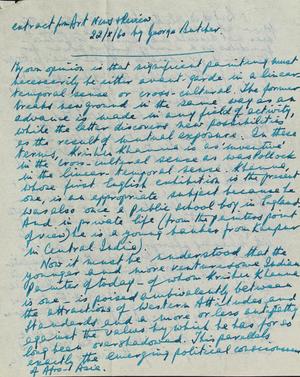 extract from Art News & Review
22/X/60 by George Butcher.
My own opinion is that significant painting must
necessarily be either avant-garde in a linear
temporal sense or cross-cultural. The former
breaks new ground in the same way as an
advance is made in any field of activity,
while the latter discovers new possibilities
as the result of mutual exposure. In these
terms, Krishen Khanna is as 'inventive'
in the cross-cultural sense as was Pollock
in the linear-temporal sense. Khanna,
whose first English exhibition is the present
one, is an appropriate subject because he
was also once a public school boy in England.
And in 'real' life (from the painters point
of view) he is a young banker from Kanpur
in Central India).
Now it must be understood that the
younger and more venturesome Indian
painter of today - of whom Krishen Khanna
is one - is poised ambivalently between
the attractions of Western attitudes and
standards and a more or less antipathy
against the values by which he has for so
long been overshadowed. This parallels
exactly the emerging political consciousness
of Afro-Asia.